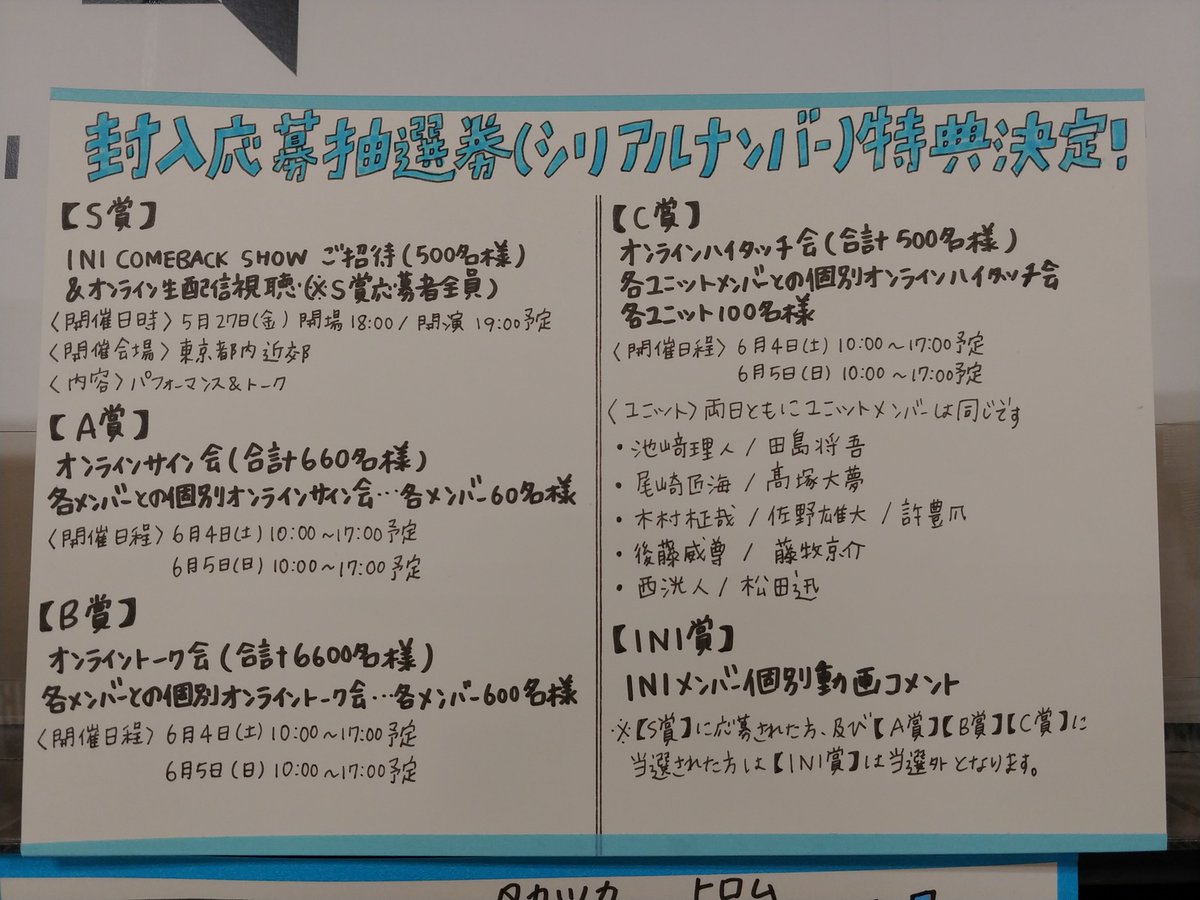 封入応募抽選券(シリアルナンバー)特典決定!
【S賞】
INI COMEBACK SHOW ご招待(500名様)
&オンライン生配信視聴・(※S賞応募者全員)
〈開催日時〉5月27日(金) 開場18:00/開演19:00予定
〈開催会場〉東京都内近郊
〈内容〉パフォーマンス&トーク
【A賞】
オンラインサイン会(合計660名様)
各メンバーとの個別オンラインサイン会…各メンバー60名様
〈開催日程〉6月4日(土)10:00~17:00予定
6月5日(日)10:00~17:00予定
【B賞】
オンライントーク会(合計6600名様)
各メンバーとの個別オンライントーク会…各メンバー600名様
〈開催日程〉6月4日(土)10:00~17:00予定
6月5日(日)10:00~17:00予定
【C賞】
オンラインハイタッチ会(合計500名様)
各ユニットメンバーとの個別オンラインハイタッチ会
各ユニット100名様
〈開催日程〉6月4日(土)10:00~17:00予定
6月5日(日)10:00~17:00予定
〈ユニット〉両日ともにユニットメンバーは同じです
・池﨑理人/田島将吾
・尾崎匠海/髙塚大夢
・木村柾哉/佐野雄大/許豊凡
・後藤威尊/藤牧京介
・西洸人/松田迅
【INI賞】
INIメンバー個別動画コメント
※【S賞】に応募された方、及び【A賞】【B賞】【C賞】に
当選された方は【INI賞】は当選外となります。
タカツカ ヒロム